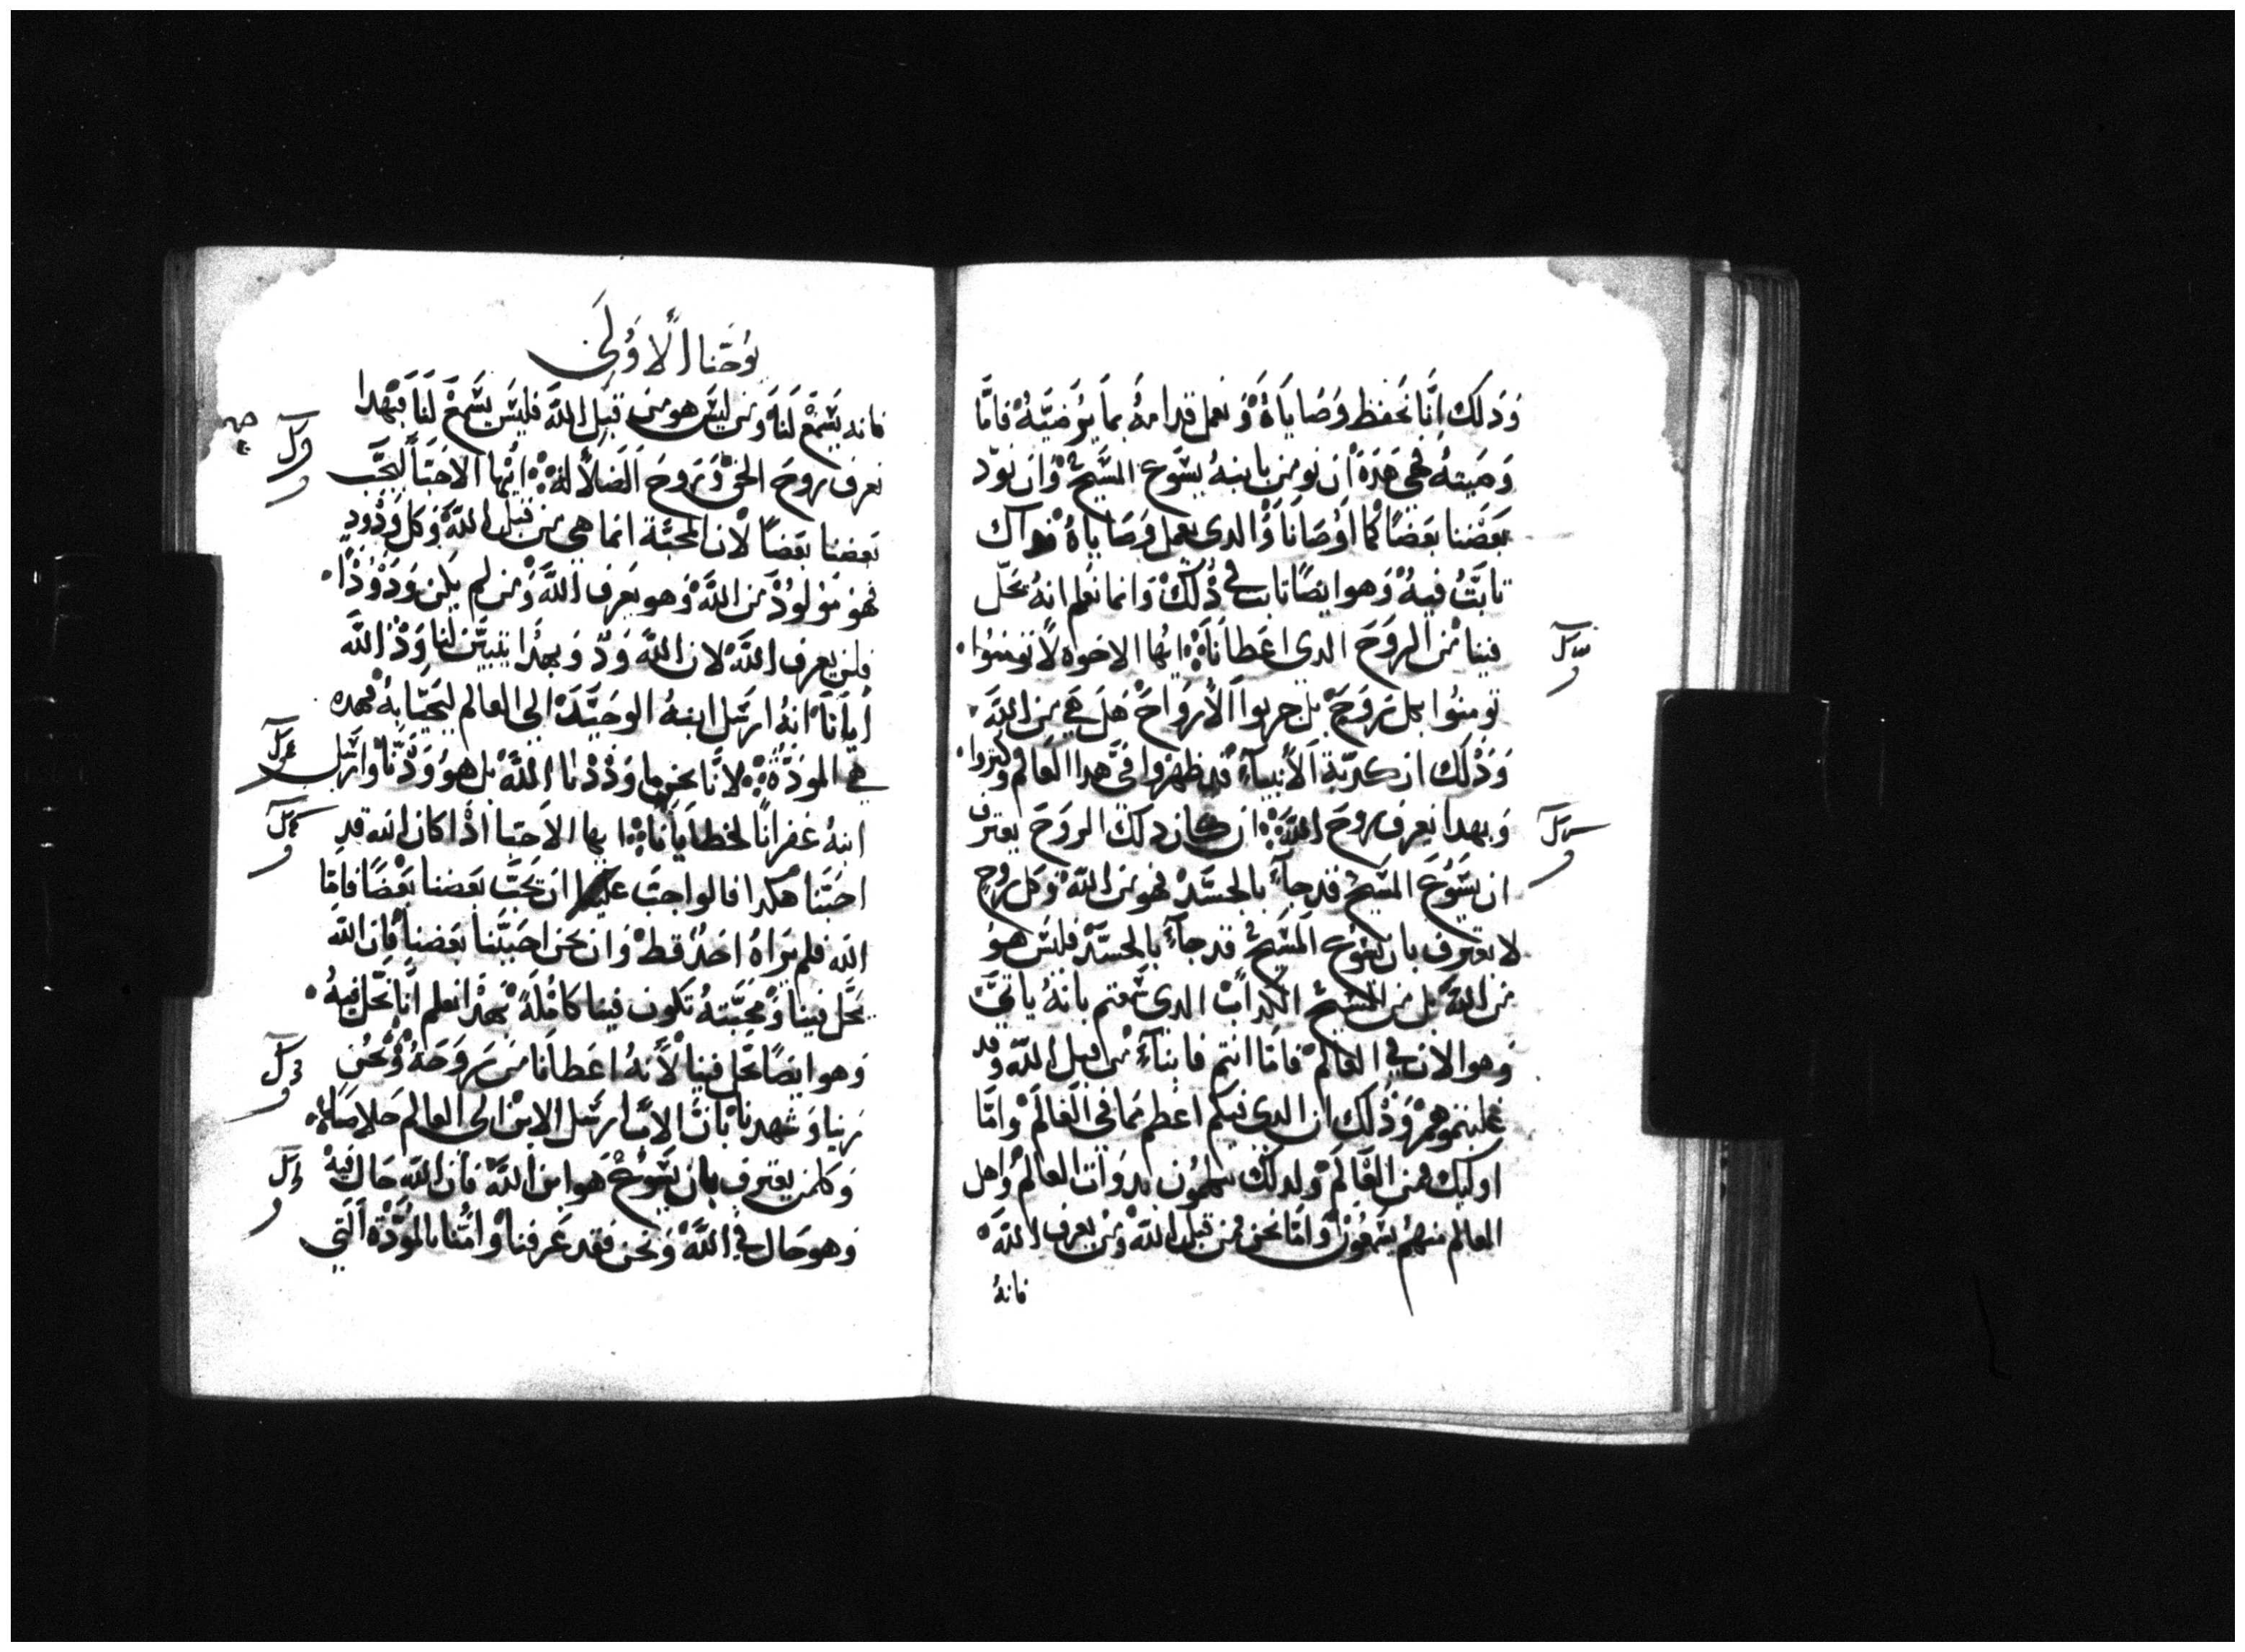 وَدَلك اِنَّا نحَفظ وَصَاياهُ وَنعمل قدامهُ بمَا يُوضيَّهُ فامَّا
وَصَيتهُ فهي هَدهَ ان نومن بابنهُ يسَوع المسَيح وَان نودّ
بعَضنا بعَضًا كما اوَصَانَا وَالدى يعمل وَصَاياهُ فداك
تابتُ فيهُ وَهوا يضًا تابت في دُلك وَانما نعَلم انهُ يحَلّ
فينا من الروَحَ الدي اعَطانَا ايُها الاخوه لا تومنوُا
تومنوُا بكل روَحٍ بل جربوا الاروَاحَ هَل هَي من اللهَ
وَدْلَك ان كدبَة الانبيآء قد ظهرُوا في هدا العَالم وكتروا
وَبهدا يعرف روحَ اللهَ ان كان دلك الروَحَ يعترف
ان يسَوُعَ المسَيحُ قد جآء بالجسَدْ فهو من اللهَ وَكل روُحٍ
لا يعترف بان يسوُع المسَيحُ قد جآء بالجسَدْ فليسَ هوُ
من اللهَ بل من المسَيح الكدابْ الدى سَمعتم بانهُ ياتي
وَهوا لان في العَالمْ فامَا انتم فابنآء من قبل اللهَ وَقد
غلبتموهمْ وَدُلك ان الدى فيكم اعظم مما في العَالَمْ وَامَّا
اوليك فمن العَالَمْ وَلدلك يتكلمُون بدوَات العالمْ وَاهل
العالم منهمُ يسَمعَونْ وَامَا نحَن فمن قبل اللهَ وَمن يعرف اللهَ
فانهُ
يوُحَنا الاوُلَى
فانه يسَمعْ لنَا وَمن ليسَ هو منَ قبَل اللهَ فليسَ يسَمعْ لنَا فبهْدا
نعرف روحَ الحَق وَروحَ الضَلالهْ ايُها الاحَبَا ليحَبَ
بعَضنا بعَضًا لان المحَبَة انما هي من قبَل اللهَ وَكل وَدُودٍ
فهوَ موَلوُدْ من اللهَ وَهو يعَرف اللهَ وَمن لم يكن وَدوُدًا
فلن يعرف اللهَ لان اللهَ وَدّ وَبهدَا يتبيَّن لنا وَدْ اللهَ
ايانَا انهُ ارسَل ابنهُ الوحَيدَ الى العالم لنحَيَا بهْ فهده
هي المودّةْ لانَّا نحَن ما وَدْدْنا اللهَ بل هوُ وَدّنَا وَارسَل
ابنهُ غفرانًا لخطايَانا ايها الاحَبا ادْا كان اللهَ قد
احَبَنا هَكدا فالواجبَ علينا ان يحَبَ بعَضنا بعَضًا فامَا
اللهَ فلم يرَاهُ احَدْ قط وَان نحَن احَببَنا بعَضنا فان اللهَ
يحَل فينا وَمحَبَتهُ تكون فينا كامَلهَ بهدْا نعلم انَّا نحَل فيهُ
وَهوا يضًا يحَل فينا لانهُ اعَطانَا منَ روَحَهُ وَنحَن
رَينا وَشهدنا بانَ الابَ ارسَل الابن الى العالم خلاصَا
وَكلمن يعترف بان يسَوُعْ هوَ ابن اللهَ فان اللهَ حَال فيهْ
وَهو حَال في اللهَ وَنحَن فقد عَرفنا وَامَنا بالموَدّة التي